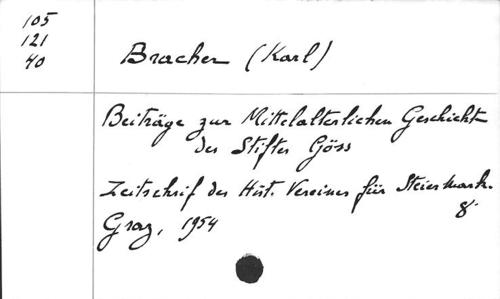 105
121
40
Bracher (Karl)
Beiträge zur Mittelalterlichen Geschicht
des Stiftes Göss
Zeitschrif des Hist. Vereines für Steiermark.
8°
Graz, 1954